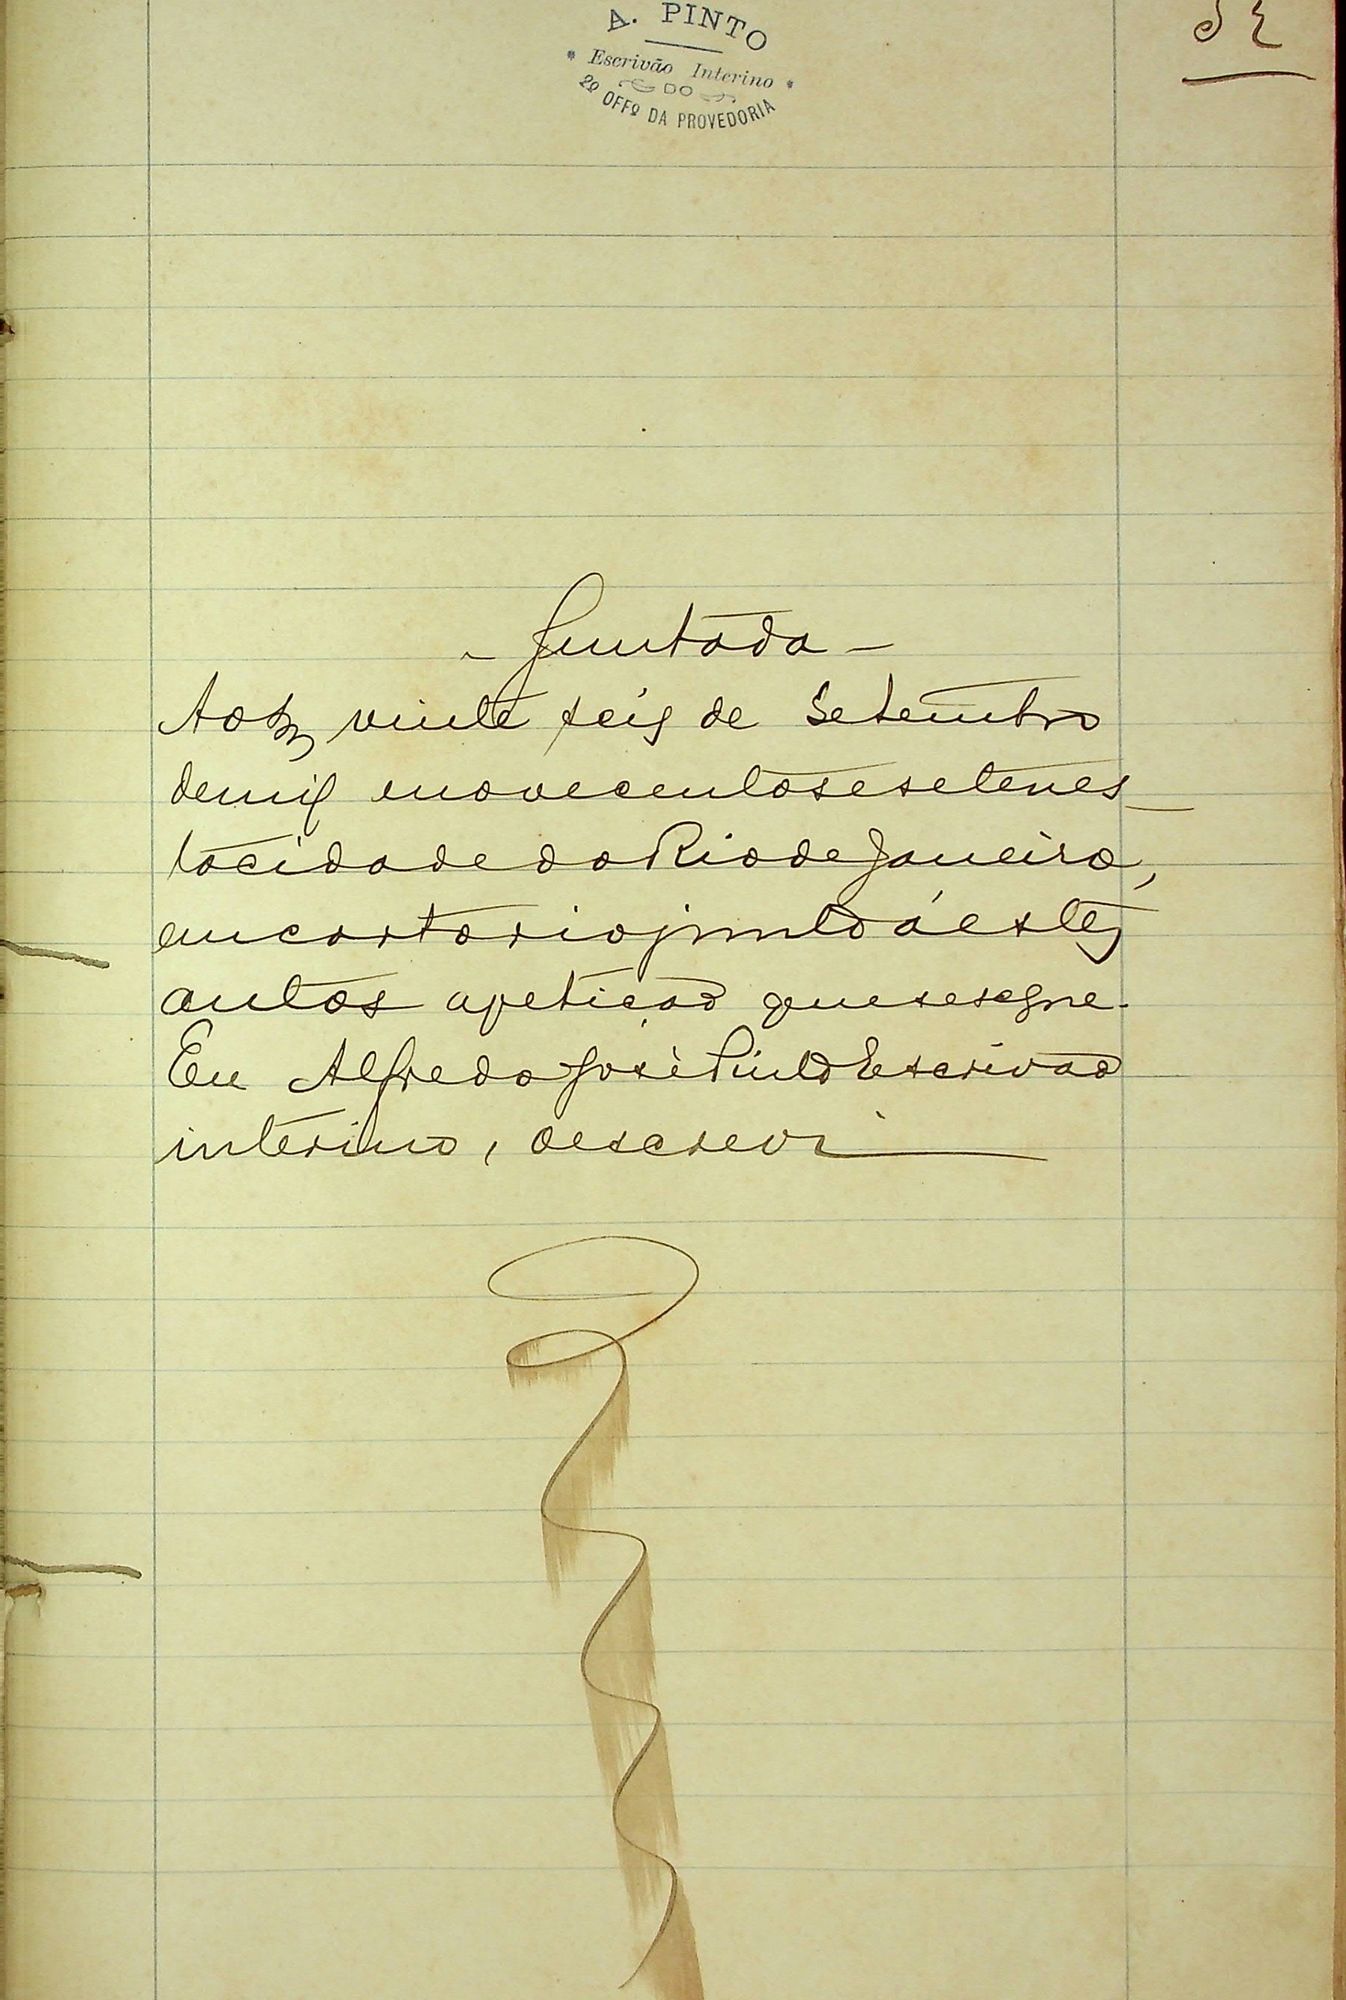 A. PINTO
Escrivão Interino
DO
2º OFFº DA PROVEDORIA
- Juntada -
Aos vinte seis de Setembro
de mil enovecentos e sete nes
ta cidade do Rio de Janeiro,
em cartorio junto á estes
autos a petição que se segue.
Eu Alfredo José Pinto Escrivão
interino, o escrevi